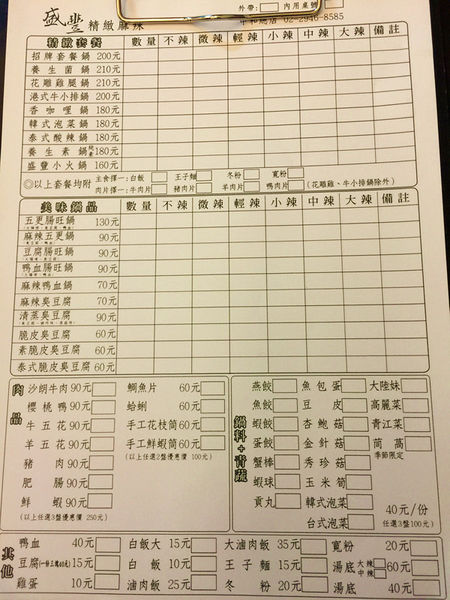 盛豐 精緻麻辣
外帶: 內用桌號
中和總店 02-2946-8585
精緻套餐 數量 不辣 微辣 輕辣 小辣 中辣 大辣 備註
招牌套餐鍋 200元
養生菌鍋 210元
花雕雞腿鍋 210元
港式牛小排鍋 200元
香咖哩鍋 180元
韓式泡菜鍋 180元
泰式酸辣鍋 180元
養生素鍋 180元
盛豐小火鍋 160元
◎以上套餐均附 主食擇一:白飯 王子麵 冬粉 寬粉
肉片擇一:牛肉片 豬肉片 羊肉片 鴨肉片 (花雕雞、牛小排鍋除外)
美味鍋品 數量 不辣 微辣 輕辣 小辣 中辣 大辣 備註
五更腸旺鍋 130元
麻辣五更鍋 90元
豆腐腸旺鍋 90元
鴨血腸旺鍋 90元
麻辣鴨血鍋 70元
麻辣臭豆腐 70元
清蒸臭豆腐 90元
脆皮臭豆腐 60元
素脆皮臭豆腐 60元
泰式脆皮臭豆腐 60元
肉品
沙朗牛肉 90元
櫻桃鴨 90元
牛五花 90元
羊五花 90元
豬肉 90元
肥腸 90元
鮮蝦 90元
(以上任選3盤優惠價 250元)
鯛魚片 60元
蛤蜊 60元
手工花枝筒 60元
手工鮮蝦筒 60元
(以上任選2盤優惠價 100元)
鍋料+青蔬
燕餃 魚包蛋 大陸妹
魚餃 豆皮 高麗菜
蝦餃 杏鮑菇 青江菜
蛋餃 金針菇 茼萵
季節限定
蟹棒 秀珍菇
蝦球 玉米筍
貢丸 韓式泡菜 40元/份
台式泡菜 (任選3盤100元)
其他
鴨血 40元 白飯大 15元 大滷肉飯 35元 寬粉 20元
豆腐(一份三塊40元) 15元 白飯 10元 王子麵 15元 湯底 大辣 中辣 60元
雞蛋 10元 滷肉飯 25元 冬粉 20元 湯底 40元